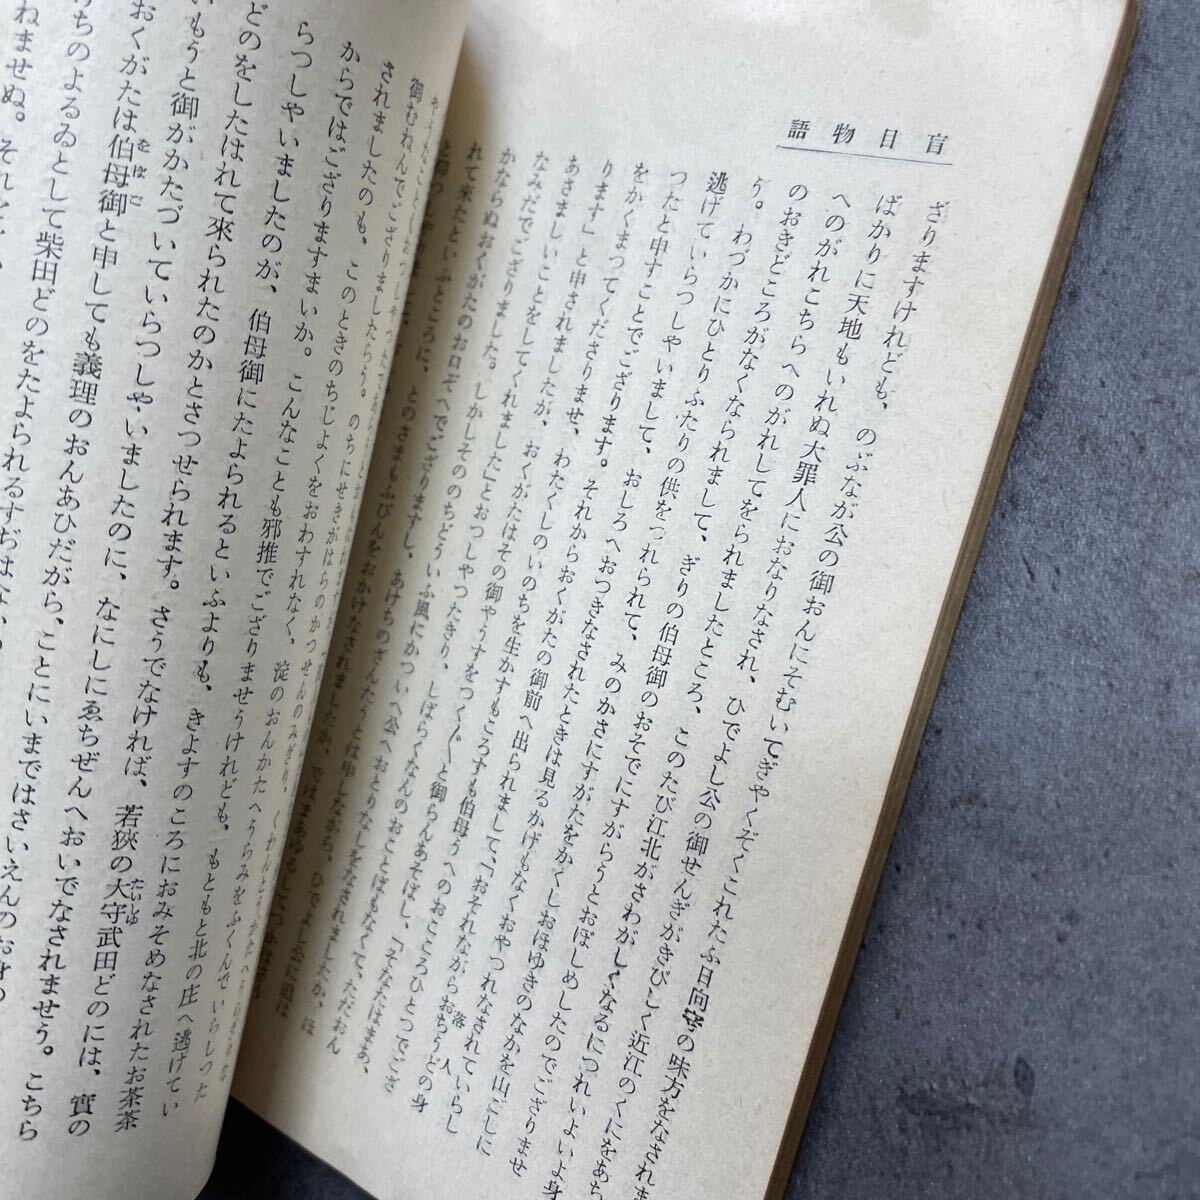 盲目物語
ざりますけれども、のぶなが公の御おんにそむいてぎやくぞくこれたふ日向守の味方をなされま
ばかりに天地もいれぬ大罪人におなりなされ、ひでよし公の御せんぎがきびしく近江のくにをあち
へのがれこちらへのがれしてをられましたところ、このたび江北がさわがしくなるにつれいよいよ身
のおきどころがなくなられまして、ぎりの伯母御のおそでにすがらうとおぼしめしたのでござりませ
う。わづかにひとりふたりの供をつれられて、みのかさにすがたをかくしおほゆきのなかを山ごしに
逃げていらつしやいまして、おしろへおつきなされたときは見るかげもなくおやつれなされていらし
つたと申すことでござります。それからおくがたの御前へ出られまして、「おそれながらおちうどの身
落人
をかくまつてくださりませ、わたくしのいのちを生かすもころすも伯母うへのおこころひとつでござ
ります」と申されましたが、おくがたはその御やうすをつく〴〵と御らんあそばし、「そなたはまあ、
あさましいことをしてくれました」とおつしやつたきり、しばらくなんのおことばもなくて、ただおん
なみだでござりました。しかしそののちどういふ風にかついへ公へおとりなしをなされましたか、ほ
かならぬおくがたのお口ぞへでござりますし、あけちのざんたうとは申しながら、ひでよし公に追は
れて来たといふところに、とのさまもふびんをおかけなされましたか、ではまあゆるしてつかはせう
御むねんでござりましたらう。のちにせきがはらのかつせんのみぎり、
されましたのも、このときのちじよくをおわすれなく、淀のおんかたへうらみをふくんでいらしつた
からではござりますまいか。こんなことも邪推でござりませうけれども、もともと北の庄へ逃げてい
らつしやいましたのが、伯母御にたよられるといふよりも、きよすのころにおみそめなされたお茶茶
どのをしたはれて來られたのかとさつせられます。さうでなければ、若狹の大守武田どのには、實の
たいしゆ
いもうと御がかたづいていらつしやいましたのに、なにしにゑちぜんへおいでなされませう。こちら
おくがたは伯母御と申しても義理のおんあひだがら、ことにいまではさいえんのお身の
をばご
ちのよるゐとして柴田どのをたよられるすぢは
ねませぬ。それ